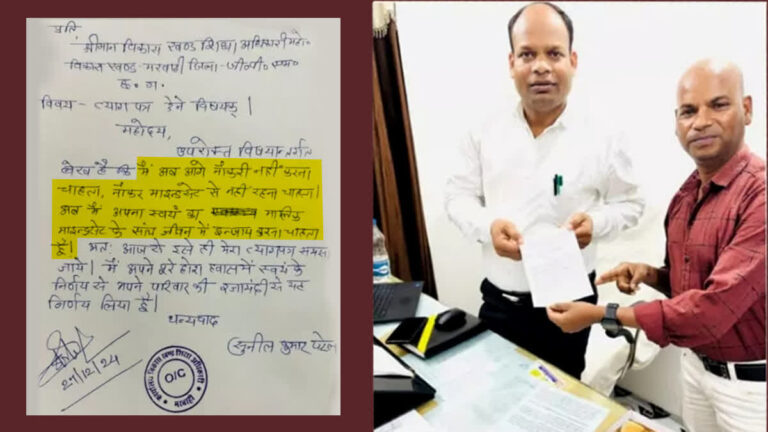 प्रति,
श्रीमान विकास खण्ड शिक्षा अधिकारी महो०
विकास खण्ड-मरवाही जिला-जी०पी०एम०
छ.ग.
विषय- त्याग पत्र देने विषयक्।
महोदय,
उपरोक्त विषयान्तर्गत
लेख है कि मैं अब आगे नौकरी नहीं करना
चाहता, नौकर माइन्डसेट से नहीं रहना चाहता।
अब मैं अपना स्वयं का मालिक
माइन्डसेट के साथ जीवन में इन्जाय करना चाहता
हूँ। अतः आज से इसे ही मेरा त्यागपत्र समझा
जाये। मैं अपने पूरे होश हवास में स्वयं के
निर्णय से अपने परिवार की रजामंदी से यह
निर्णय लिया हूँ।
धन्यवाद
सुनील कुमार पटेल
27/12/24
कार्यालय विकास खण्ड शिक्षा अधिकारी
O/C
मरवाही